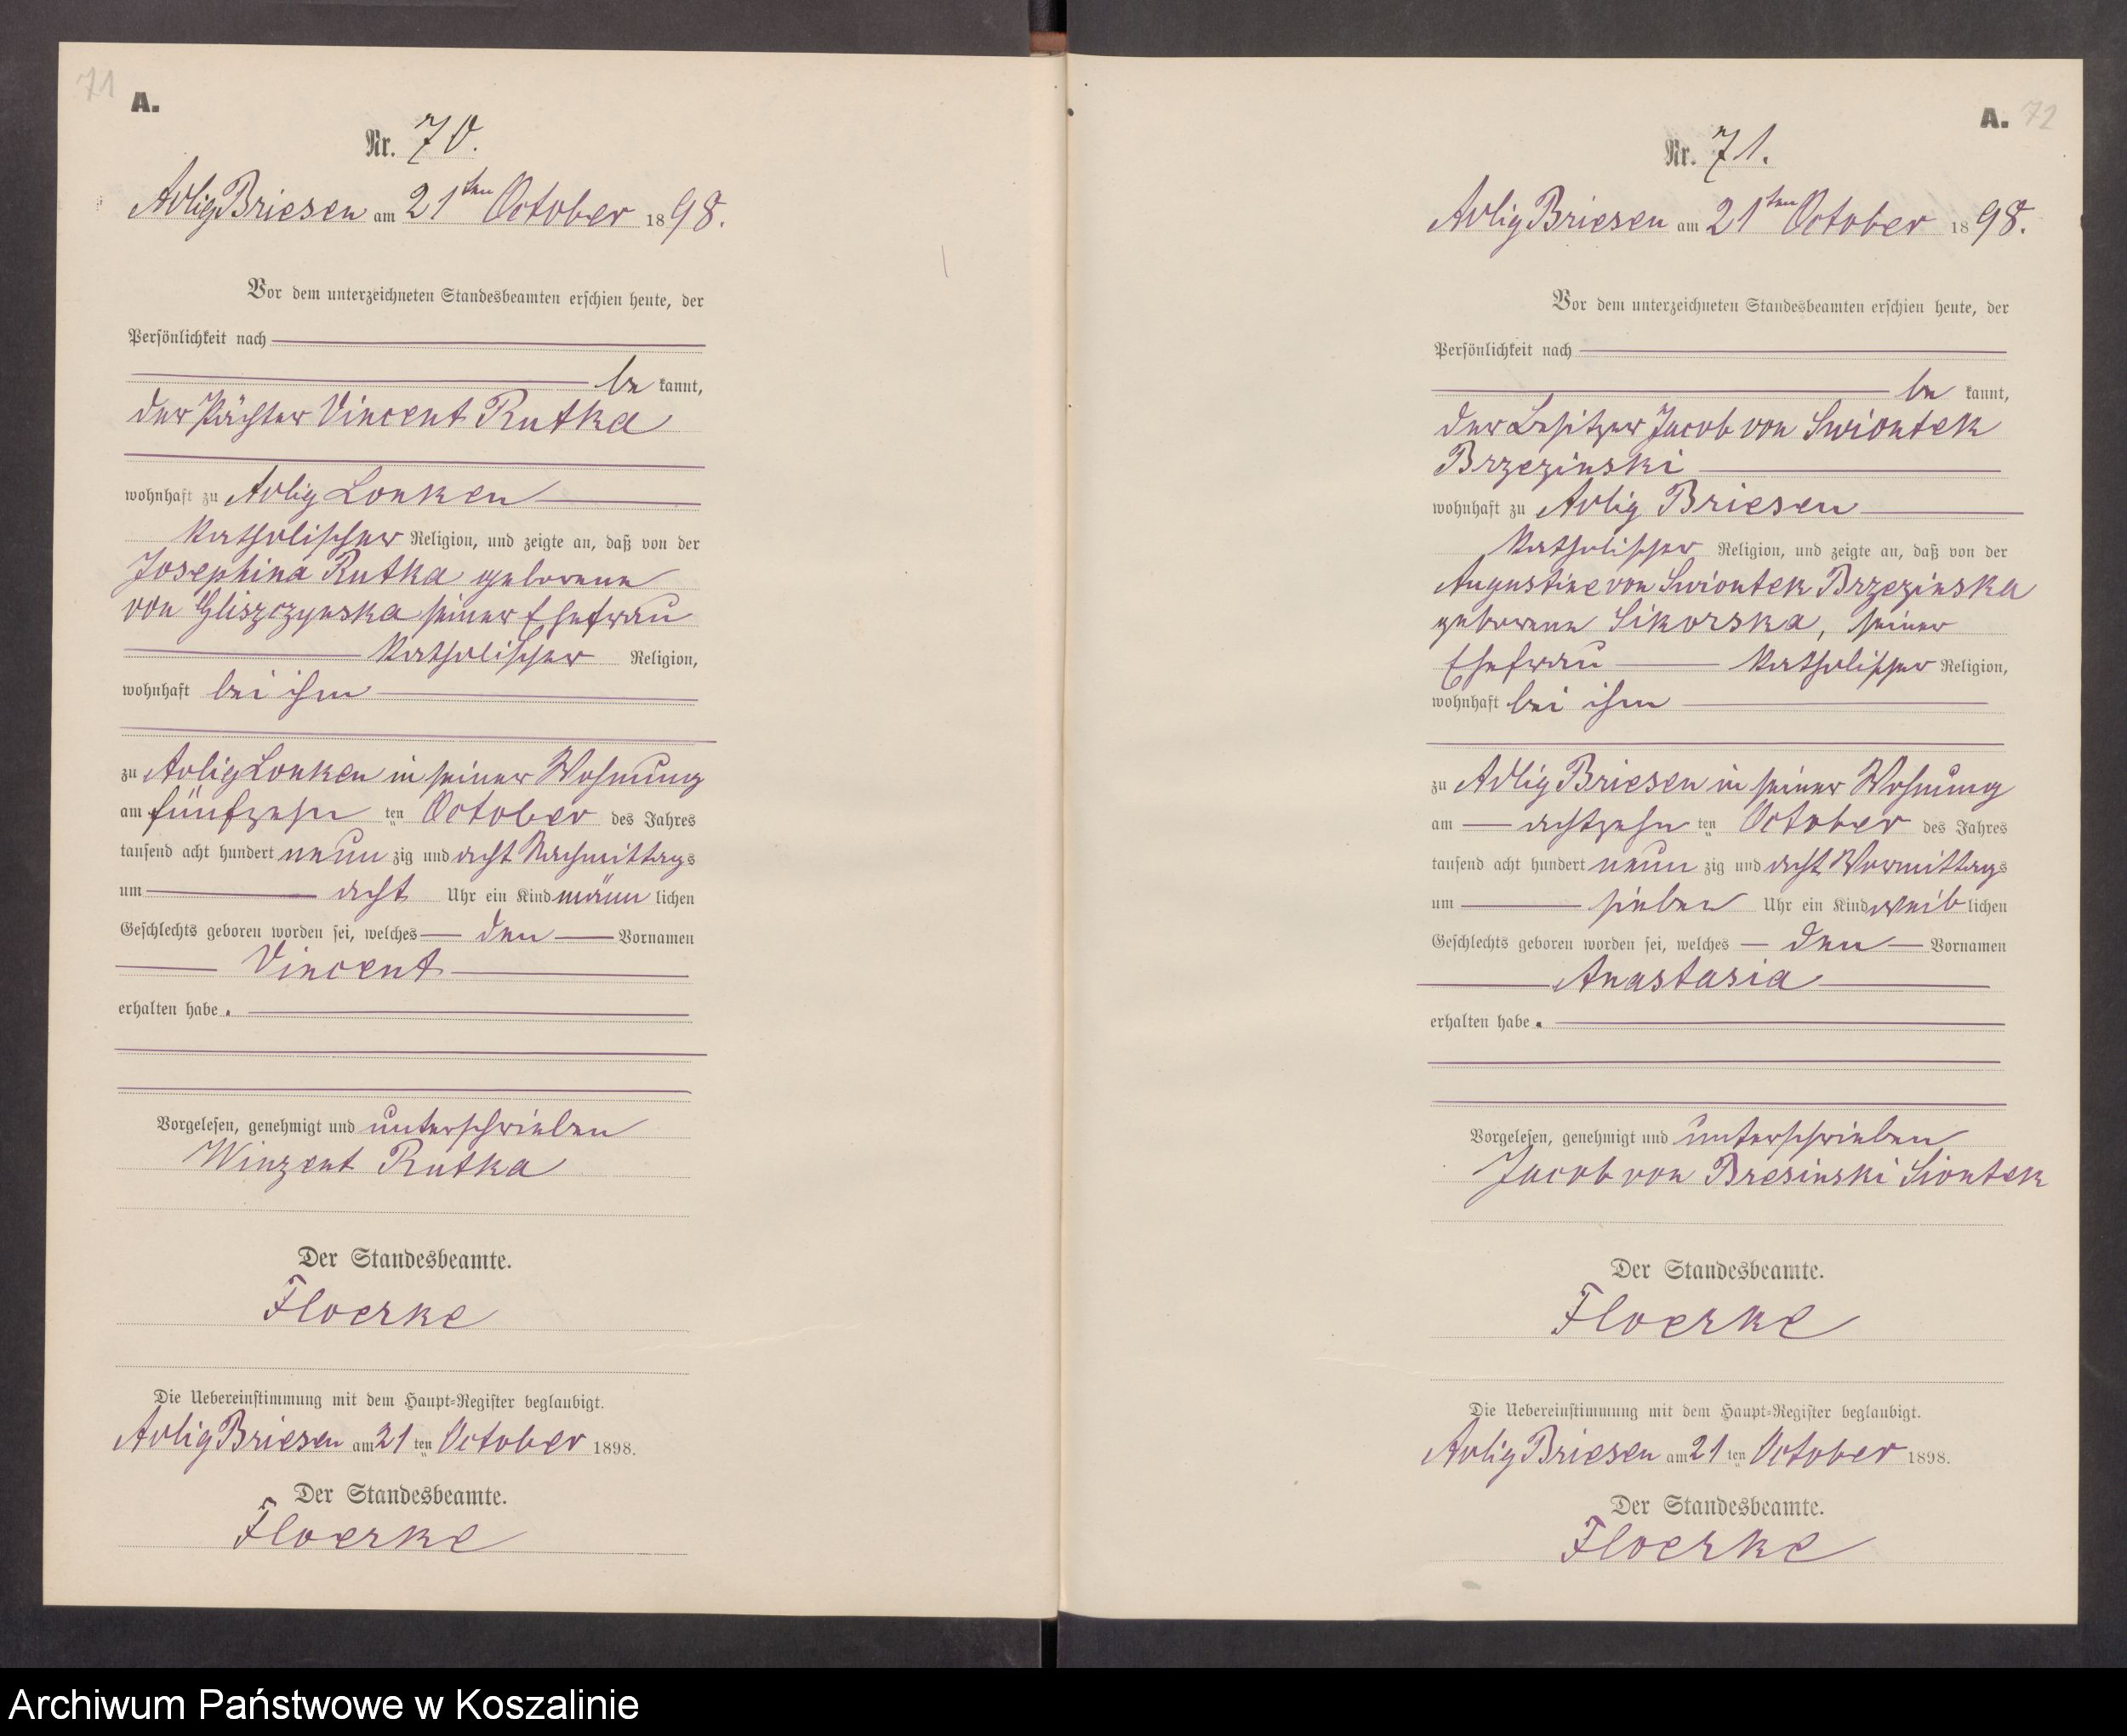 71
A.
Nr. 70.
Adlig Briesen am 21ten October 1898.
Vor dem unterzeichneten Standesbeamten erschien heute, der
Persönlichkeit nach
be kannt,
der Pächter Vincent Rutka
wohnhaft zu Adlig Lonken
katholischer Religion, und zeigte an, daß von der
Josephina Rutka geborene
von Gliszczynska seiner Ehefrau
katholischer Religion,
wohnhaft bei ihm
zu Adlig Lonken in seiner Wohnung
am fünfzehn ten October des Jahres
tausend acht hundert neun zig und acht Nachmittags
um acht Uhr ein Kind männ lichen
Geschlechts geboren worden sei, welches den Vornamen
Vincent
erhalten habe.
Vorgelesen, genehmigt und unterschrieben
Winzent Rutka
Der Standesbeamte.
Floerke
Die Uebereinstimmung mit dem Haupt-Register beglaubigt.
Adlig Briesen am 21 ten October 1898.
Der Standesbeamte.
Floerke
A. 72
Nr. 71.
Adlig Briesen am 21ten October 1898.
Vor dem unterzeichneten Standesbeamten erschien heute, der
Persönlichkeit nach
be kannt,
der Besitzer Jacob von Swiontek
Brzezinski
wohnhaft zu Adlig Briesen
katholischer Religion, und zeigte an, daß von der
Augustine von Swiontek Brzezinska
geborene Sikorska, seiner
Ehefrau katholischer Religion,
wohnhaft bei ihm
zu Adlig Briesen in seiner Wohnung
am achtzehn ten October des Jahres
tausend acht hundert neun zig und acht Vormittags
um sieben Uhr ein Kind weib lichen
Geschlechts geboren worden sei, welches den Vornamen
Anastasia
erhalten habe.
Vorgelesen, genehmigt und unterschrieben
Jacob von Bresinski Siontek
Der Standesbeamte.
Floerke
Die Uebereinstimmung mit dem Haupt-Register beglaubigt.
Adlig Briesen am 21 ten October 1898.
Der Standesbeamte.
Floerke
Archiwum Państwowe w Koszalinie